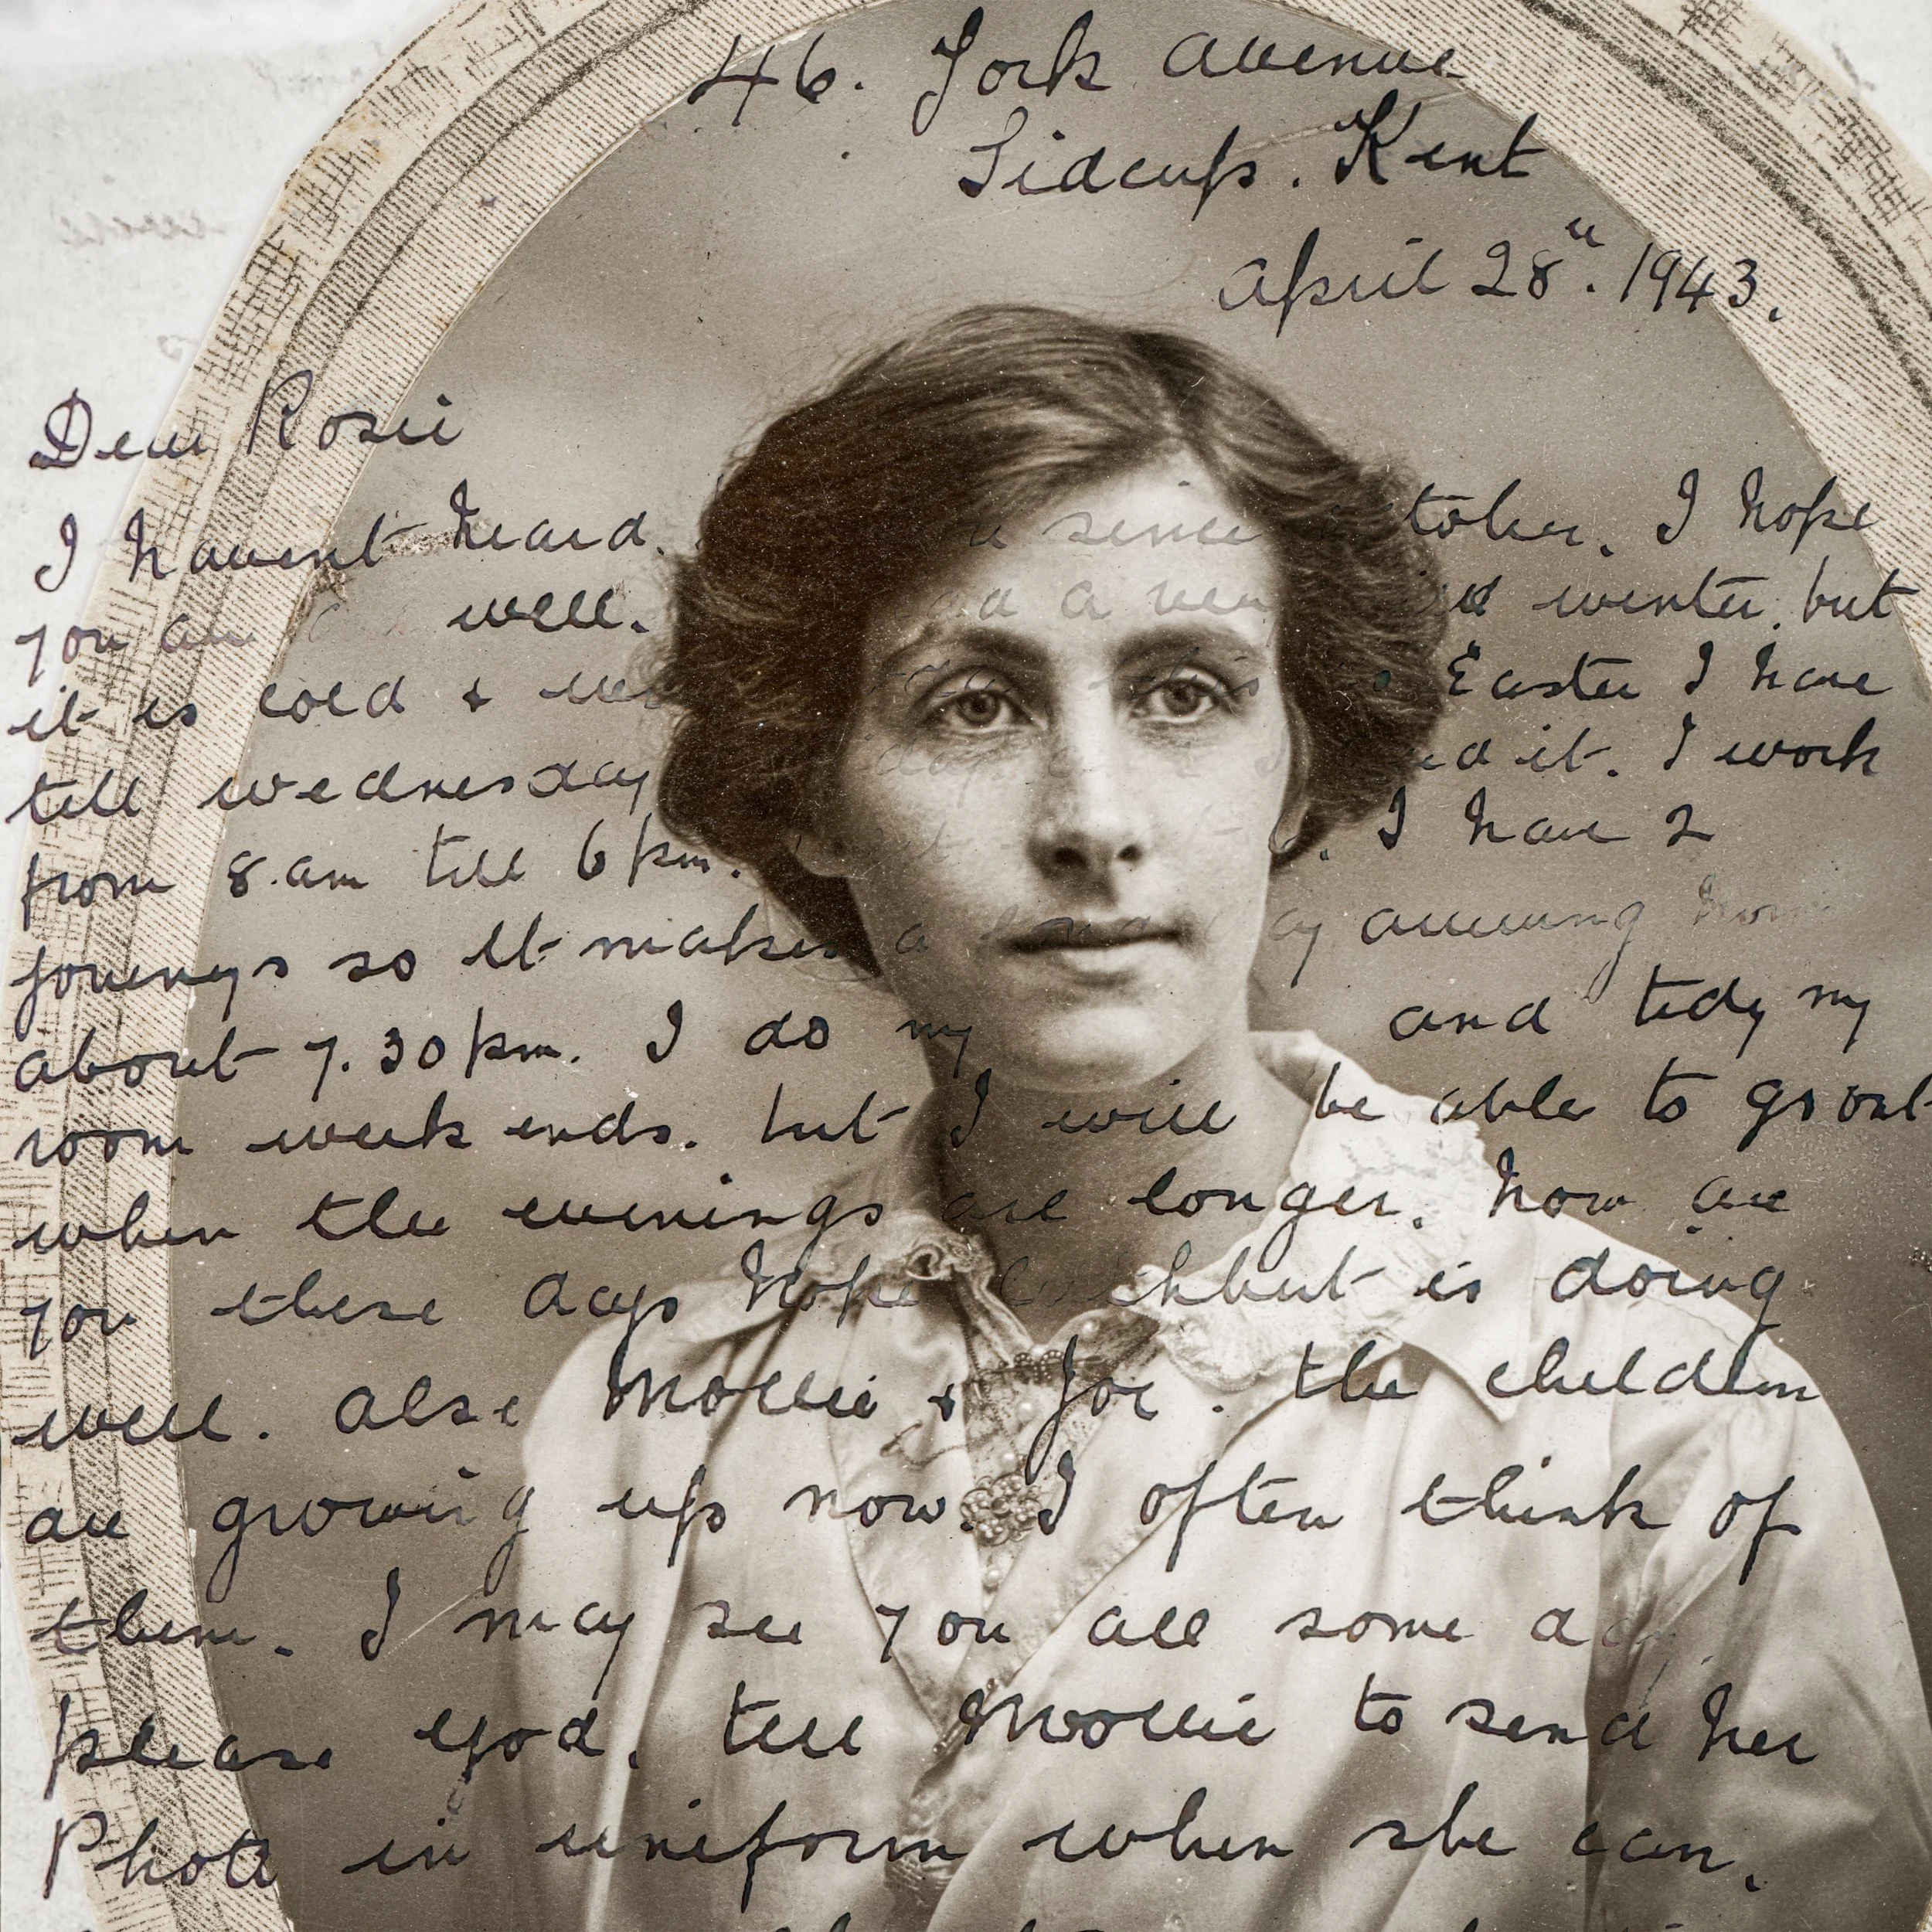 46. York avenue
Sidcup. Kent
April 28". 1943.
Dear Rosie
I havent heard. since tober. I hope
you are well. a very winter. but
it is cold & Easter I have
till wednesday ed it. I work
from 8.am till 6 pm. I have 2
joureys so it makes a long day arriving home
about 7.30 pm. I do my and tidy my
room week ends. but I will be able to go out
when the evenings are longer. how are
you these days hope is doing
well. also Mollie & Joe. the children
are growing up now. I often think of
them. I may see you all some day
please God. tell Mollie to send her
Photo in uniform when she can.